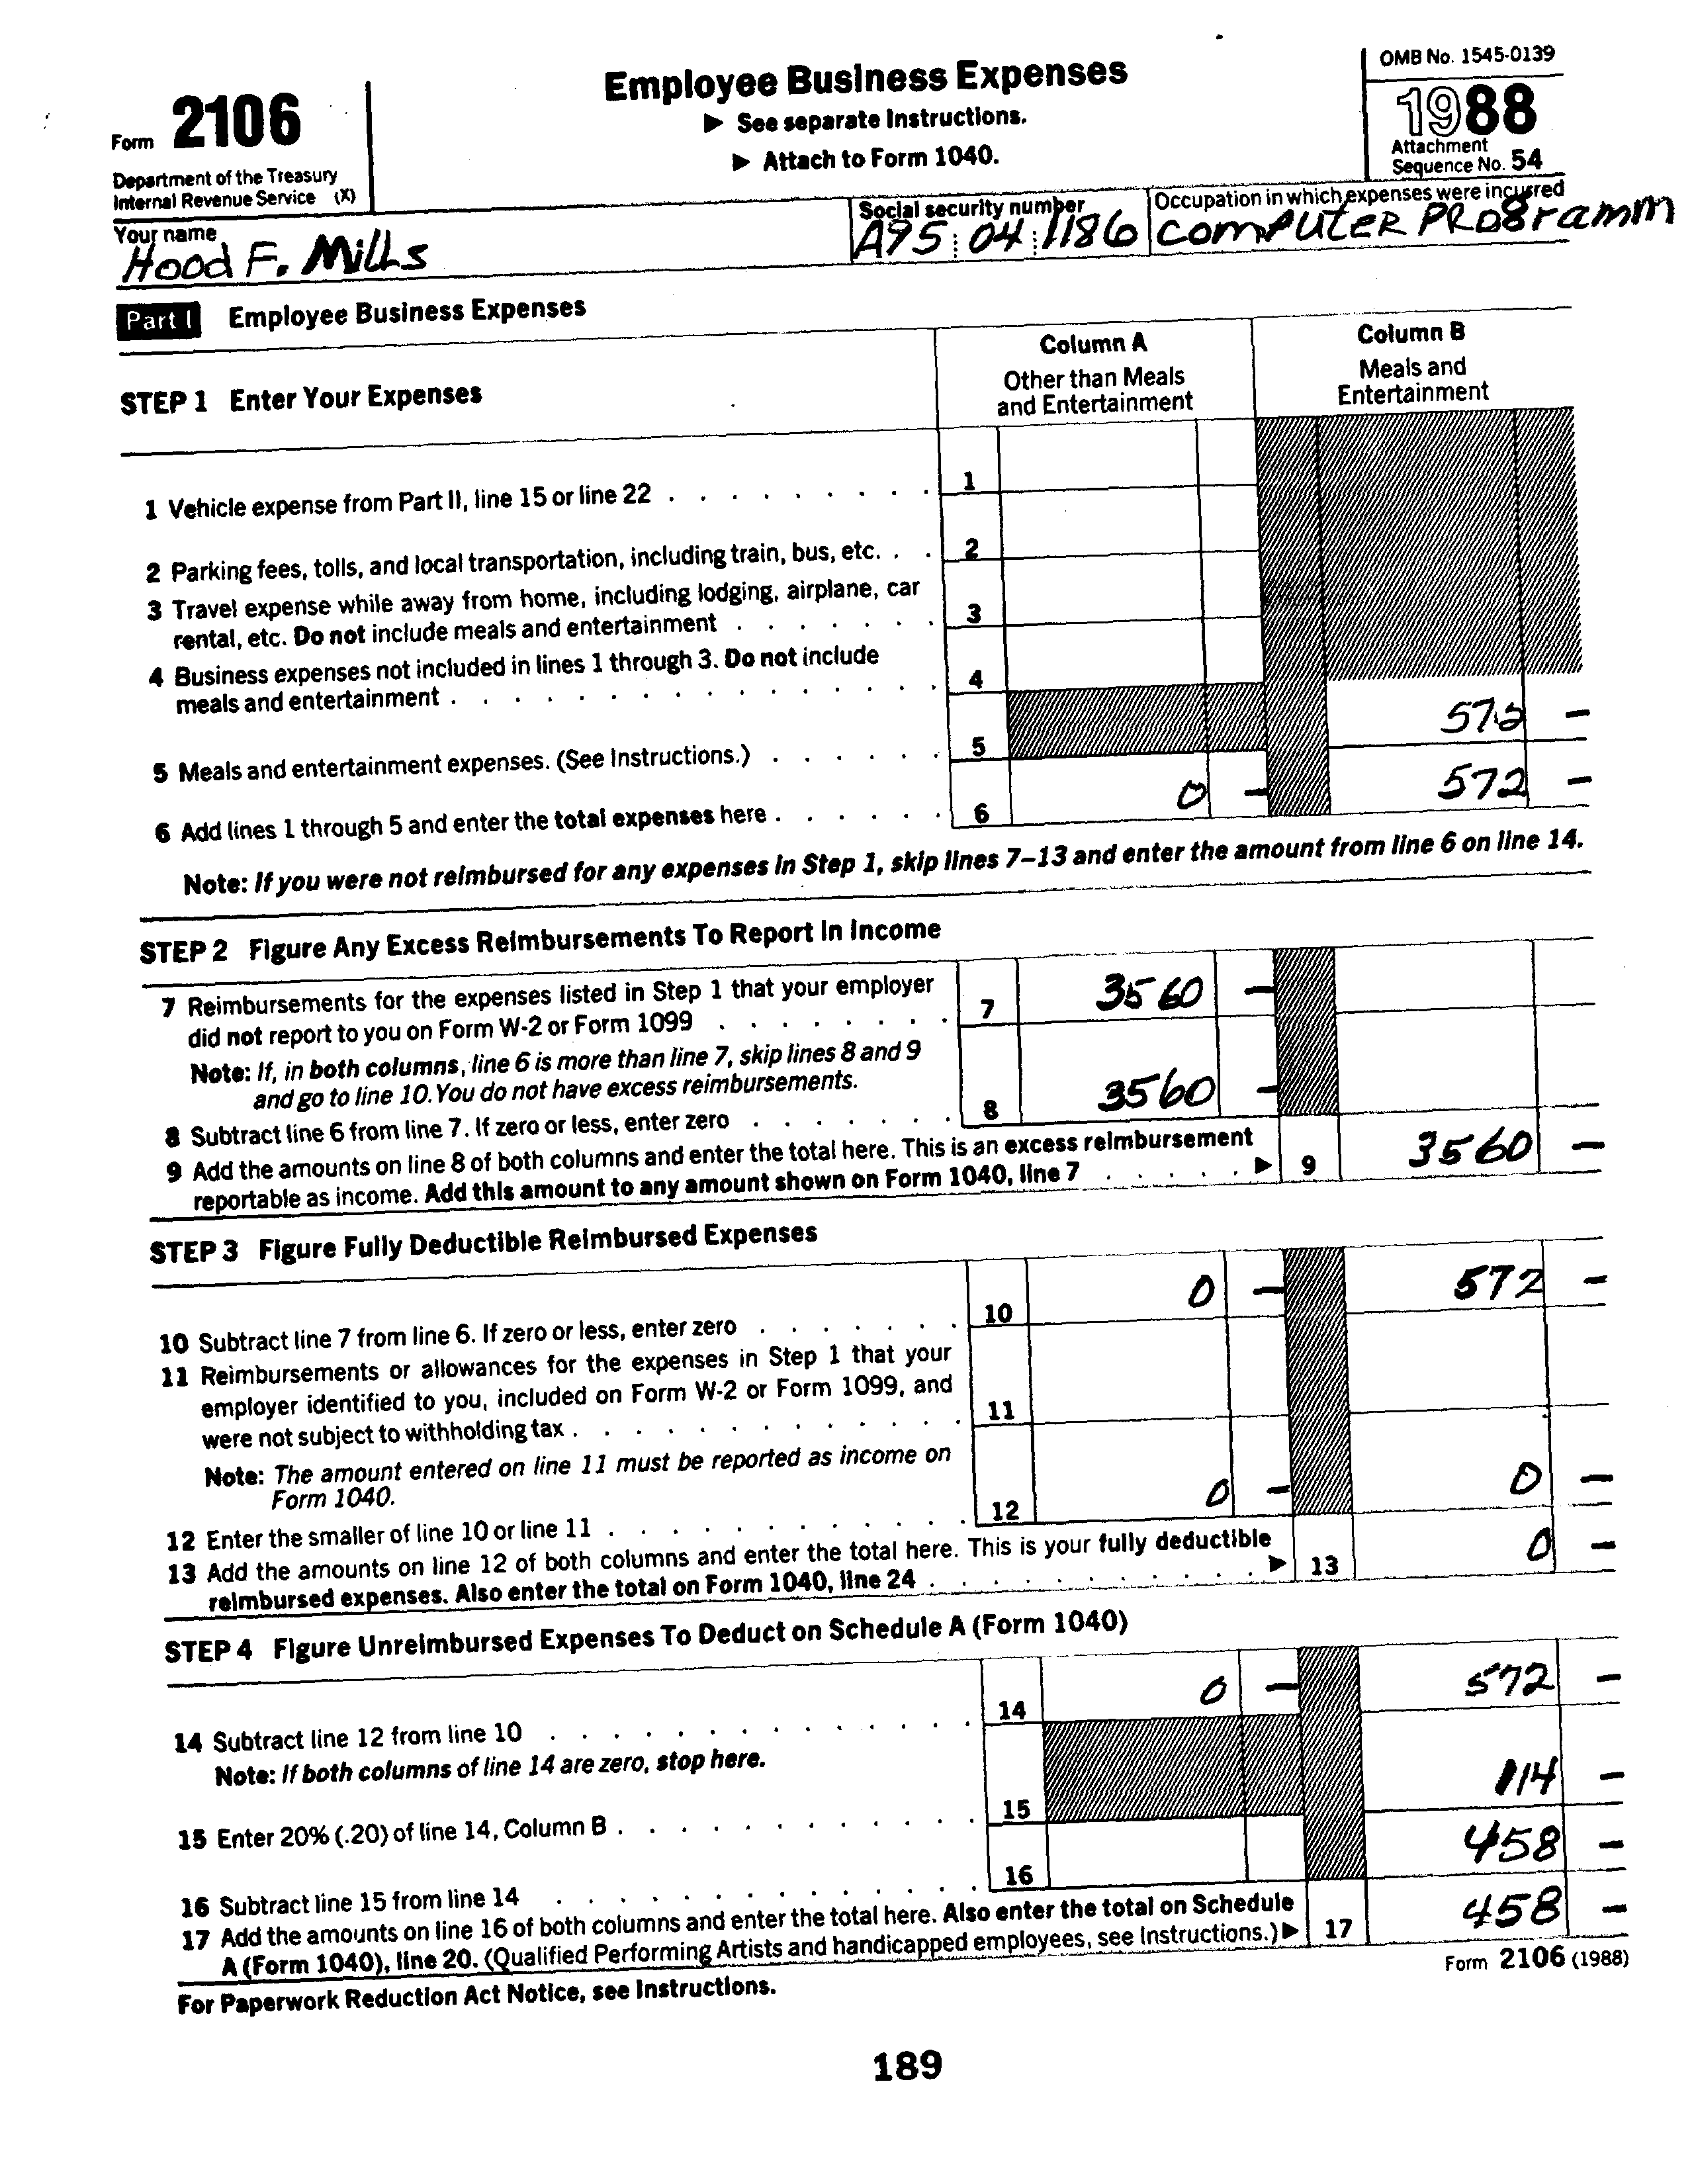 Form 2106
Department of the Treasury
Internal Revenue Service (X)
Employee Business Expenses
▶ See separate Instructions.
▶ Attach to Form 1040.
OMB No. 1545-0139
1988
Attachment
Sequence No. 54
Your name
Hood F. Mills
Social security number
A95 04 1186
Occupation in which expenses were incurred
computer Programm
Part I Employee Business Expenses
STEP 1 Enter Your Expenses
Column A
Other than Meals
and Entertainment
Column B
Meals and
Entertainment
1 Vehicle expense from Part II, line 15 or line 22 . . . . . . . . . 1
2 Parking fees, tolls, and local transportation, including train, bus, etc. . . 2
3 Travel expense while away from home, including lodging, airplane, car
rental, etc. Do not include meals and entertainment . . . . . . . 3
4 Business expenses not included in lines 1 through 3. Do not include
meals and entertainment . . . . . . . . . . . . . . . . 4
5 Meals and entertainment expenses. (See Instructions.) . . . . . . 5 572 –
6 Add lines 1 through 5 and enter the total expenses here . . . . . . 6 0 – 572 –
Note: If you were not reimbursed for any expenses in Step 1, skip lines 7–13 and enter the amount from line 6 on line 14.
STEP 2 Figure Any Excess Reimbursements To Report In Income
7 Reimbursements for the expenses listed in Step 1 that your employer
did not report to you on Form W-2 or Form 1099 . . . . . . . . 7 3560 –
Note: If, in both columns, line 6 is more than line 7, skip lines 8 and 9
and go to line 10. You do not have excess reimbursements.
8 Subtract line 6 from line 7. If zero or less, enter zero . . . . . . . 8 3560 –
9 Add the amounts on line 8 of both columns and enter the total here. This is an excess reimbursement
reportable as income. Add this amount to any amount shown on Form 1040, line 7 . . . . . ▶ 9 3560 –
STEP 3 Figure Fully Deductible Reimbursed Expenses
10 Subtract line 7 from line 6. If zero or less, enter zero . . . . . . . 10 0 – 572 –
11 Reimbursements or allowances for the expenses in Step 1 that your
employer identified to you, included on Form W-2 or Form 1099, and
were not subject to withholding tax . . . . . . . . . . . . . 11
Note: The amount entered on line 11 must be reported as income on
Form 1040.
12 Enter the smaller of line 10 or line 11 . . . . . . . . . . . . 12 0 – 0 –
13 Add the amounts on line 12 of both columns and enter the total here. This is your fully deductible
reimbursed expenses. Also enter the total on Form 1040, line 24 . . . . . . . . . . . ▶ 13 0 –
STEP 4 Figure Unreimbursed Expenses To Deduct on Schedule A (Form 1040)
14 Subtract line 12 from line 10 . . . . . . . . . . . . . . 14 0 – 572 –
Note: If both columns of line 14 are zero, stop here.
15 Enter 20% (.20) of line 14, Column B . . . . . . . . . . . . 15 114 –
16 Subtract line 15 from line 14 . . . . . . . . . . . . . . 16 458 –
17 Add the amounts on line 16 of both columns and enter the total here. Also enter the total on Schedule
A (Form 1040), line 20. (Qualified Performing Artists and handicapped employees, see Instructions.) ▶ 17 458 –
For Paperwork Reduction Act Notice, see Instructions.
Form 2106 (1988)
189